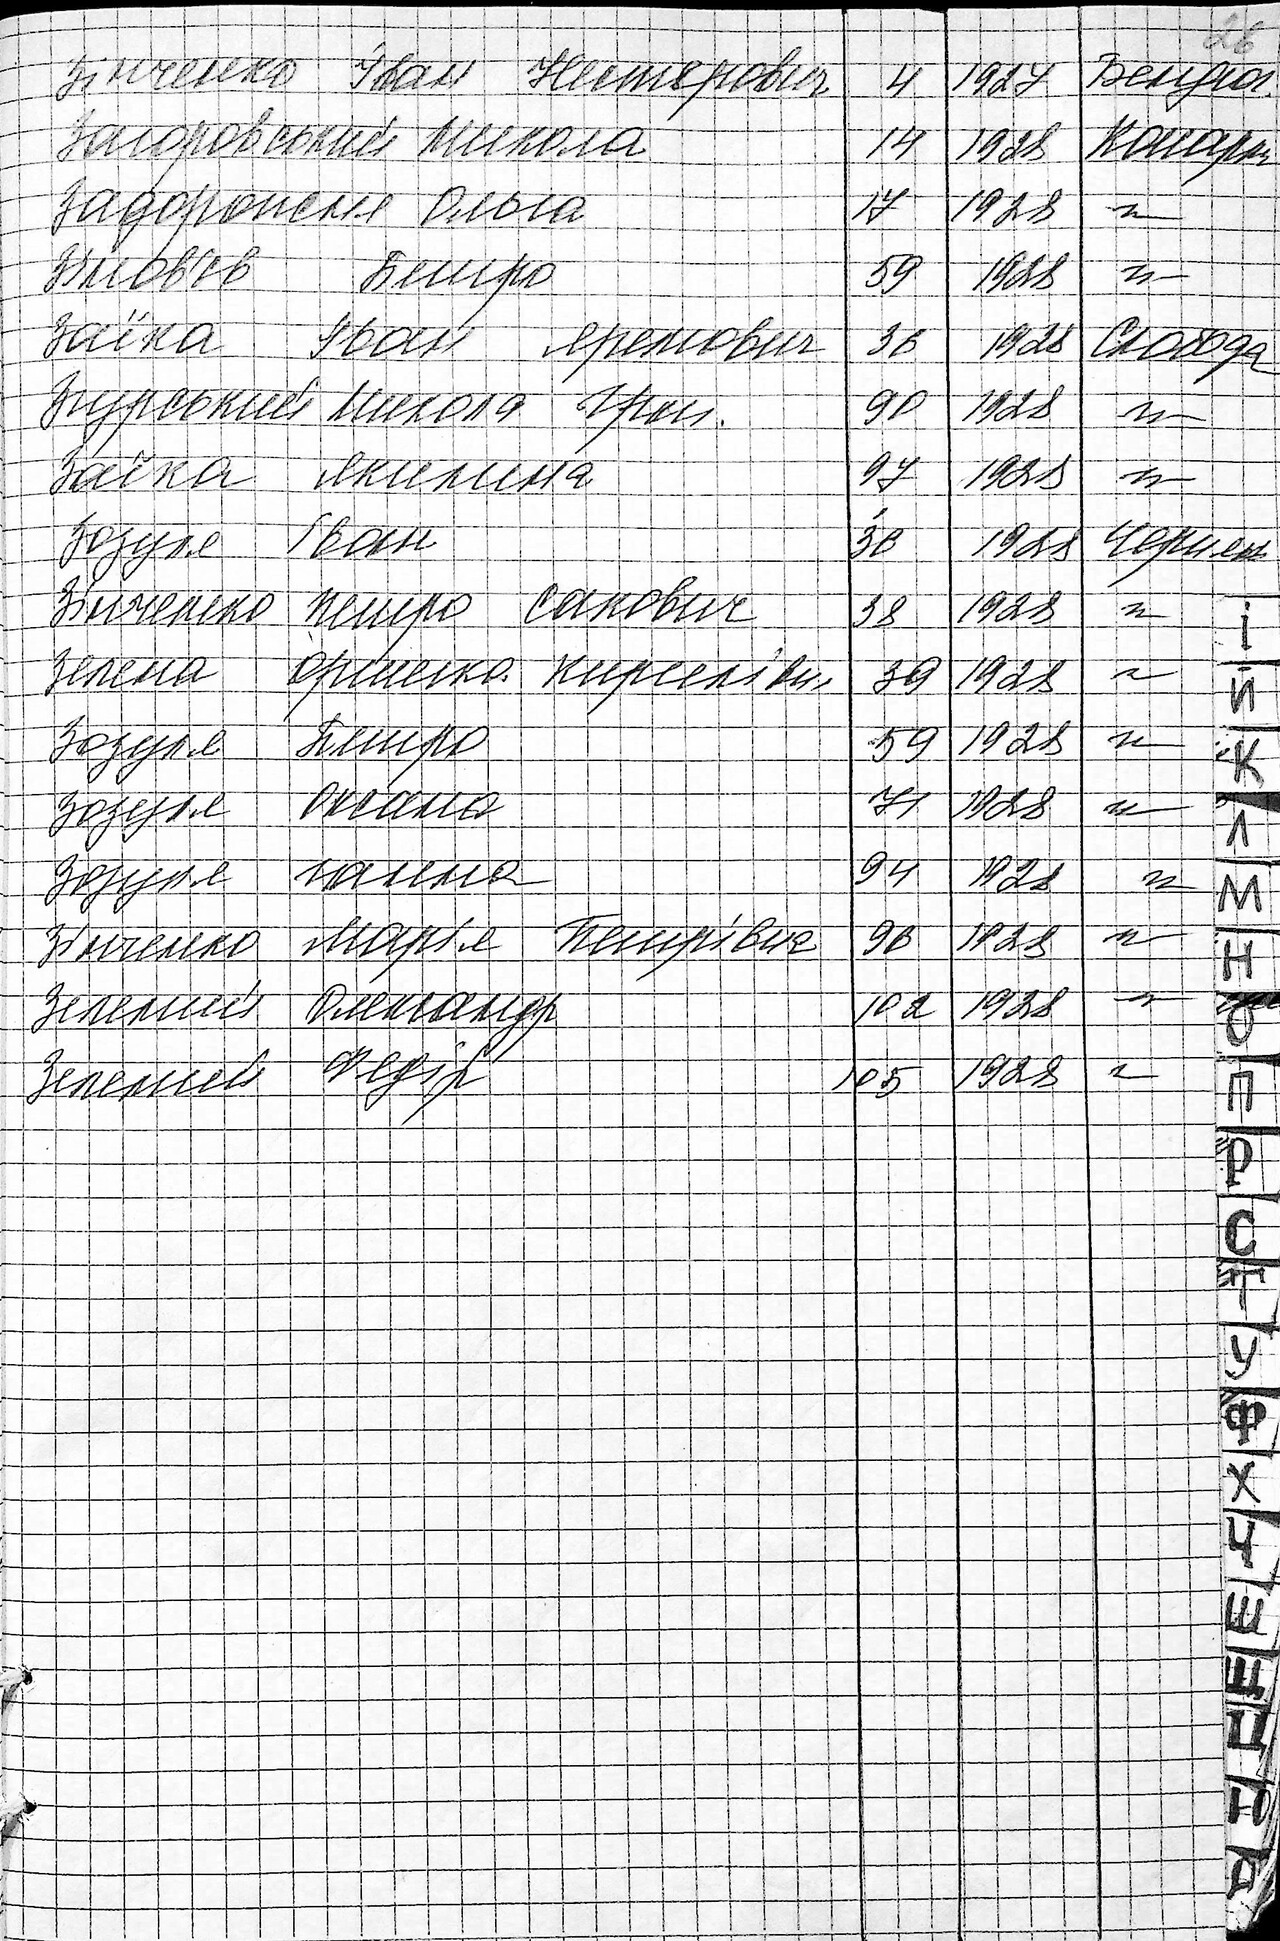 26
Зінченко Іван Нестерович 4 1927
Загоровський Микола 14 1928
Задорожня Ольга 17 1928 -"-
Зіновʼєв Петро 59 1928 -"-
Заїка Іван Яремович 36 1928 Слобода
Згурський Микола Гри. 90 1928 -"-
Заїка Якилина 97 1928 -"-
Зозуля Іван 36 1928
Зінченко Петро Сакович 38 1928 -"-
Зелена Оришка 39 1928 -"-
Зозуля Петро 59 1928 -"-
Зозуля Оксана 71 1928 -"-
Зозуля Ганна 94 1928 -"-
Зінченко Марія Петрівна 96 1928 -"-
Зелений Олександр 102 1928 -"-
Зелений Федір 105 1928 -"-
І
Й
К
Л
М
Н
О
П
Р
С
Т
У
Ф
Х
Ч
Ш
Щ
Ц
Ю
Я